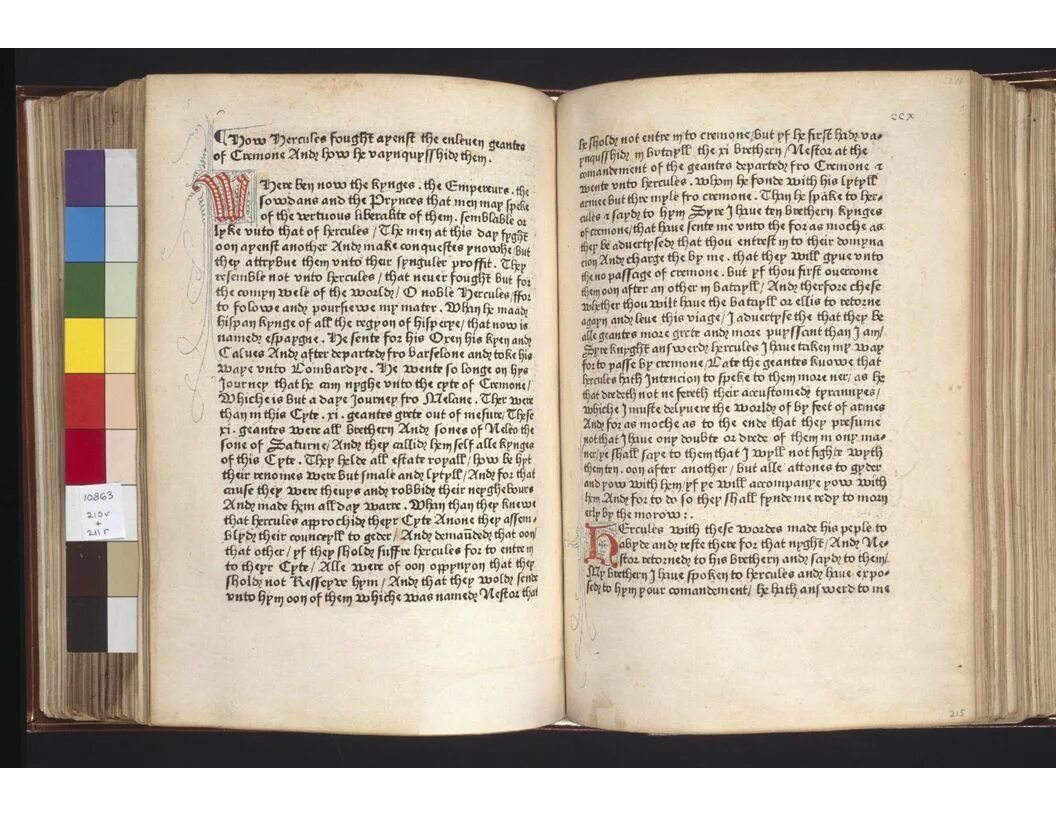 ¶How Hercules fought ayenst the enleuen geantes
of Cremone And how he vaynquysshid them.
WHere ben now the kynges . the Empereurs . the
sowdans and the Prynces that men may speke
of the vertuous liberalite of them . semblable or
lyke vnto that of hercules / The men at this day fyght
oon ayenst another And make conquestes ynowhe / but
they attrybue them vnto their synguler proffit . They
resemble not vnto hercules / that neuer fought but for
the comyn wele of the world / O noble Hercules / ffor
to folowe and poursiewe my mater . Whan he maad
hispan kynge of all the regyon of hisperye / that now is
named espaygne . He sente for his Oxen his kyen and
Calues And after departed fro barselone and toke his
waye vnto Lombardye . He wente so longe on hys
Journey that he cam nyghe vnto the cyte of Cremone /
Whiche is but a daye Journey fro Melane . Ther were
than in this Cyte . xi . geantes grete out of mesure / These
xi . geantes were all brethern And sones of Neleo the
sone of Saturne / And they callid hem self alle kynges
of this Cyte . They helde all estate royall / how be hyt
their renomes were but smale and lytyll / And for that
cause they were theuys and robbid their neyghebours
And made hem all day warre . Whan than they knewe
that hercules approchid theyr Cyte Anone they assem-
blyd their counceyll to geder / And demaūded that oon
that other / yf they shold suffre hercules for to entre in
to theyr Cyte / Alle were of oon oppynyon that they
shold not Resseyue hym / And that they wold sende
vnto hym oon of them whiche was named Nestor that
ccx
he shold not entre in to cremone / but yf he first had va-
ynqusshid in bataylł the xi brethern / Nestor at the
comandement of the geantes departed fro Cremone &
wente vnto hercules . whom he fonde with his lytyll
armee but thre myle fro cremone . Than he spake to her-
cules & sayd to hym Syre I haue ten brethern kynges
of cremone / that haue sente me vnto the for as moche as
they be aduertysed that thou entrest in to their domyna
cion And charge the by me . that they will gyue vnto
the no passage of cremone . but yf thou first ouercome
them oon after an other in bataylł / And therfore chese
whether thou wilt haue the bataylł or ellis to retorne
agayn and leue this viage / I aduertyse the that they be
alle geantes more grete and more puyssant than I am /
Syre knyght answerd hercules I haue taken my way
for to passe by cremone / Late the geantes knowe that
hercules hath Intencion to speke to them more ner / as he
that dredeth not ne fereth their accustomed tyrannyes /
whiche I muste delyuere the world of by feet of armes
And for as moche as to the ende that they presume
not that I haue ony doubte or drede of them in ony ma-
ner / ye shall saye to them that I wyll not fighte wyth
them ten . oon after another / but alle attones to gyder
and yow with hem / yf ye will accompanye yow with
hem And for to do so they shall fynde me redy to morn
erly by the morow :.
HErcules with these wordes made his peple to
abyde and reste there for that nyght / And Ne-
stor retorned to his brethern and sayd to them /
My brethern I haue spoken to hercules and haue expo-
sed to hym your comandement / he hath answerd to me
215
10863
210v
+
211r